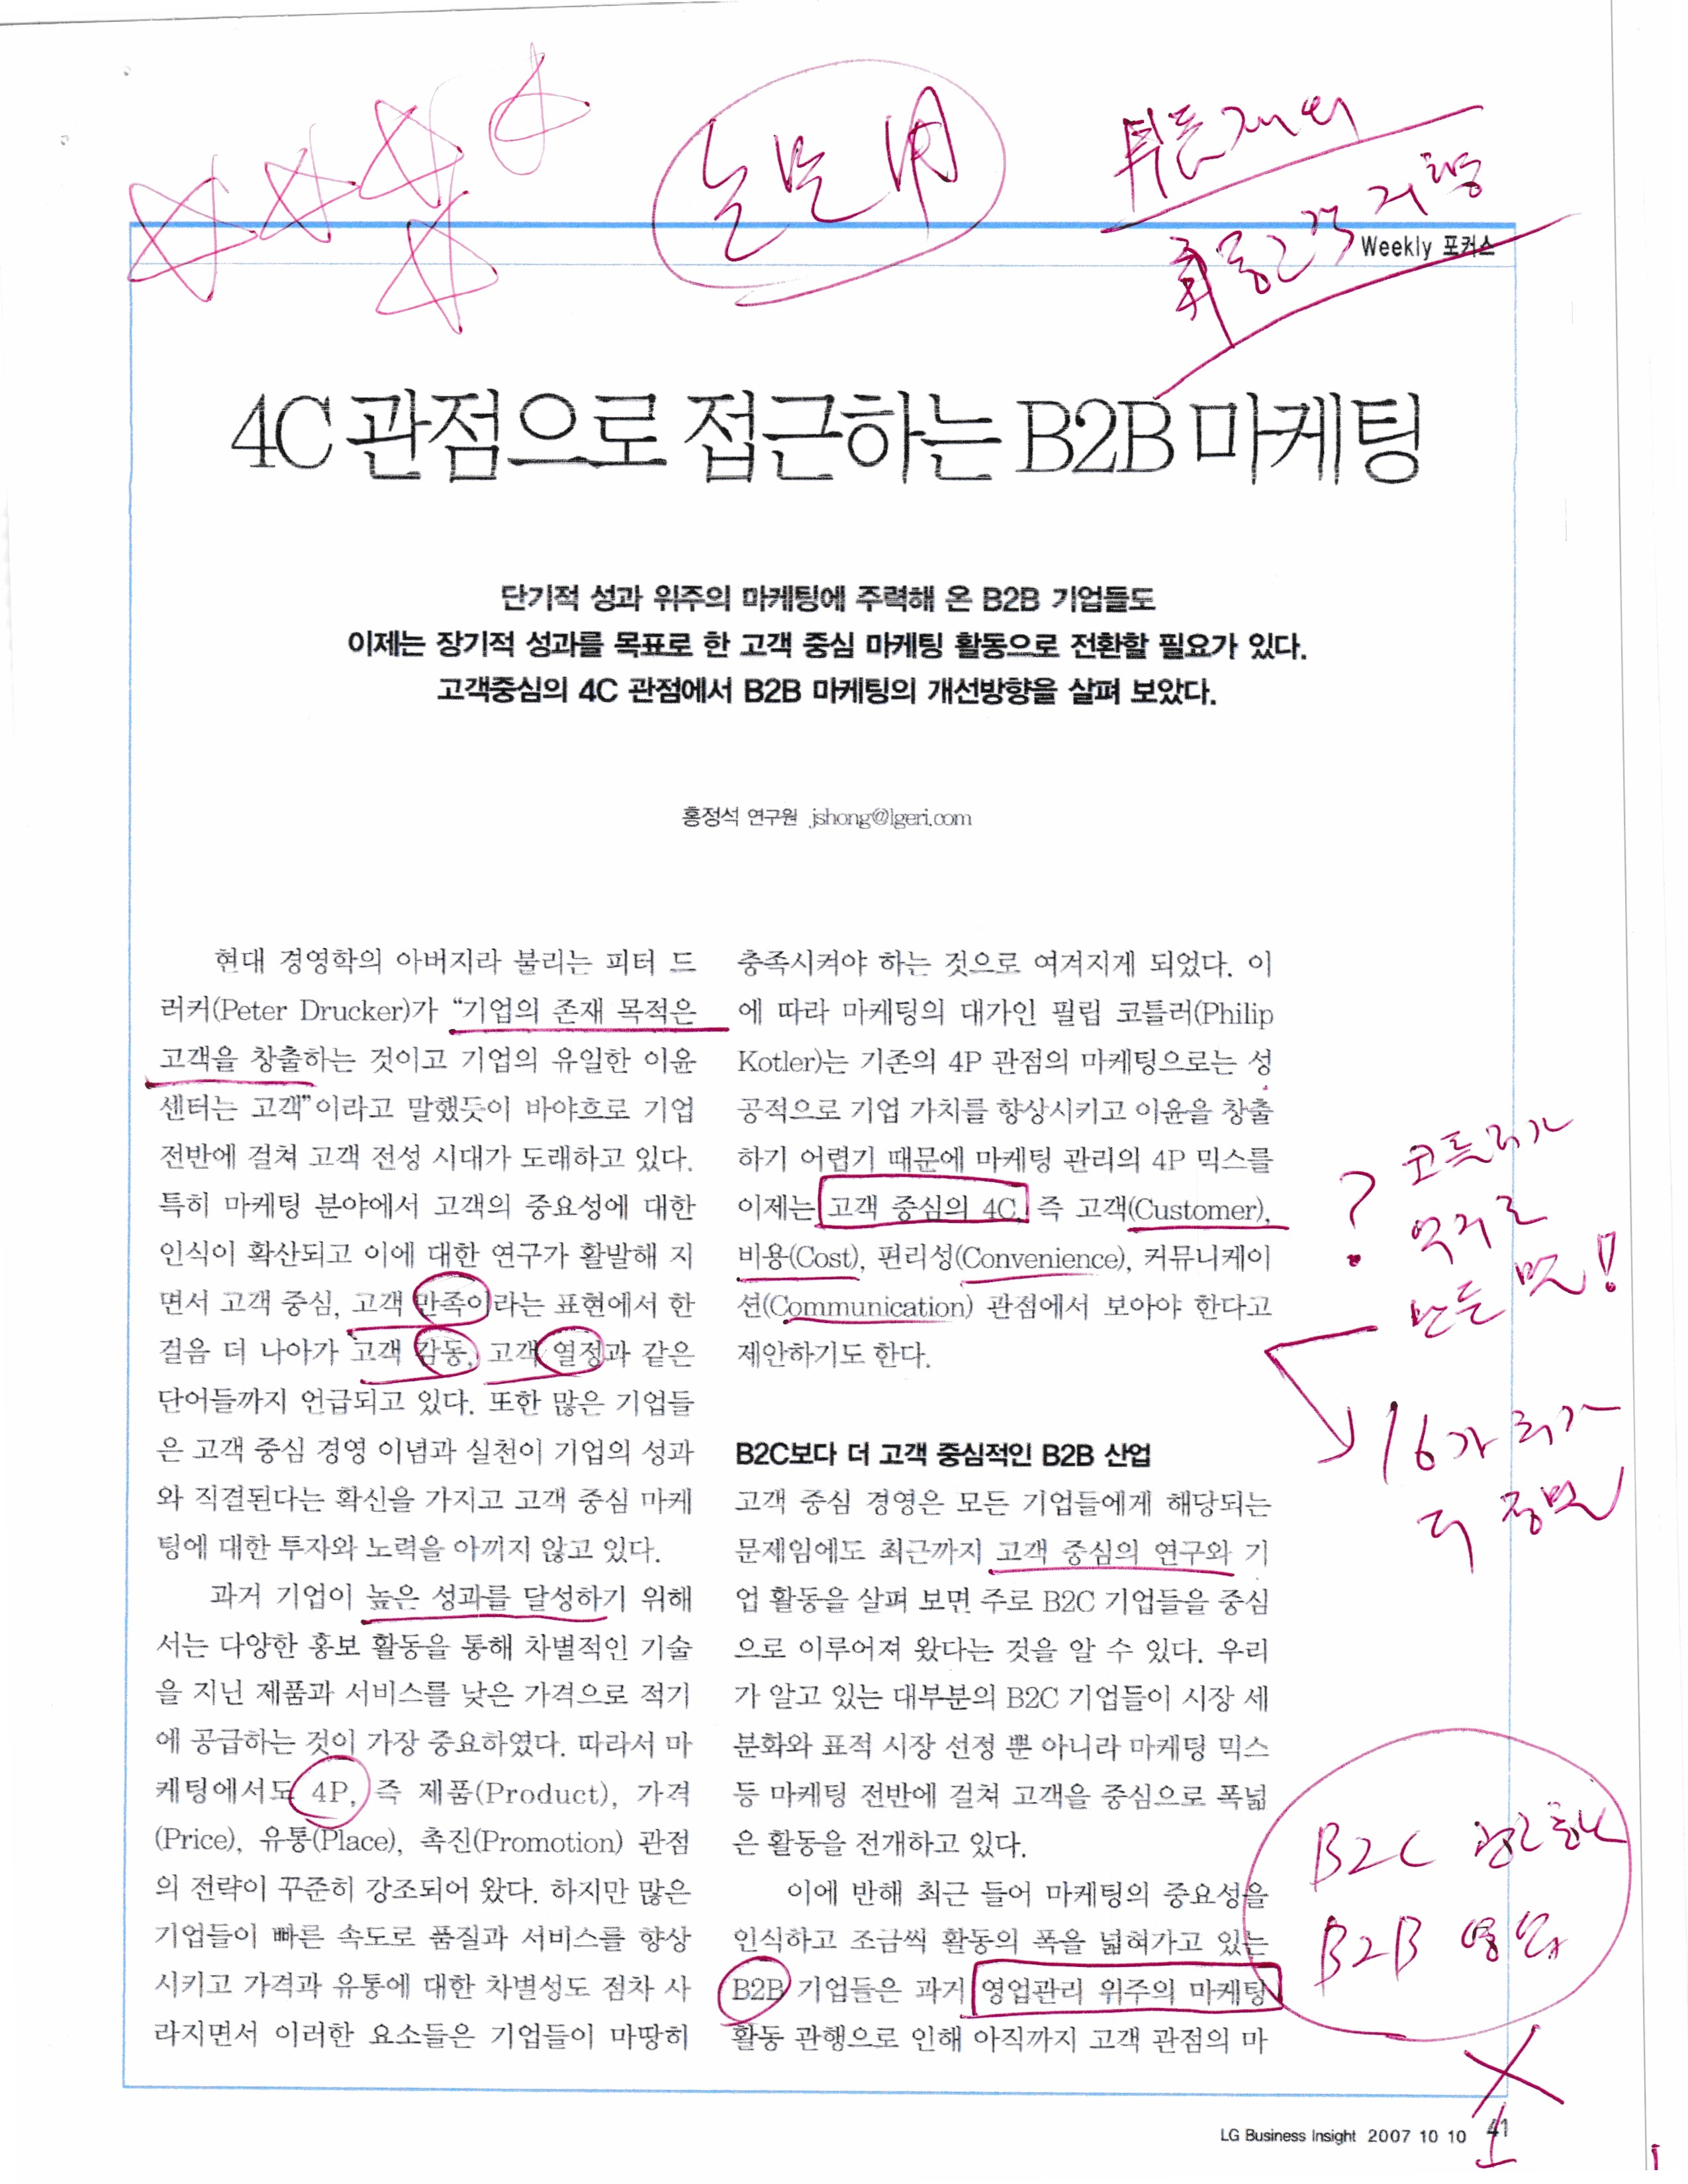 논문 用
Weekly 포커스
4C 관점으로 접근하는 B2B 마케팅
단기적 성과 위주의 마케팅에 주력해 온 B2B 기업들도
이제는 장기적 성과를 목표로 한 고객 중심 마케팅 활동으로 전환할 필요가 있다.
고객중심의 4C 관점에서 B2B 마케팅의 개선방향을 살펴 보았다.
홍정석 연구원 jshong@lgeri.com
현대 경영학의 아버지라 불리는 피터 드
러커(Peter Drucker)가 “기업의 존재 목적은
고객을 창출하는 것이고 기업의 유일한 이윤
센터는 고객”이라고 말했듯이 바야흐로 기업
전반에 걸쳐 고객 전성 시대가 도래하고 있다.
특히 마케팅 분야에서 고객의 중요성에 대한
인식이 확산되고 이에 대한 연구가 활발해 지
면서 고객 중심, 고객 만족이라는 표현에서 한
걸음 더 나아가 고객 감동, 고객 열정과 같은
단어들까지 언급되고 있다. 또한 많은 기업들
은 고객 중심 경영 이념과 실천이 기업의 성과
와 직결된다는 확신을 가지고 고객 중심 마케
팅에 대한 투자와 노력을 아끼지 않고 있다.
과거 기업이 높은 성과를 달성하기 위해
서는 다양한 홍보 활동을 통해 차별적인 기술
을 지닌 제품과 서비스를 낮은 가격으로 적기
에 공급하는 것이 가장 중요하였다. 따라서 마
케팅에서도 4P, 즉 제품(Product), 가격
(Price), 유통(Place), 촉진(Promotion) 관점
의 전략이 꾸준히 강조되어 왔다. 하지만 많은
기업들이 빠른 속도로 품질과 서비스를 향상
시키고 가격과 유통에 대한 차별성도 점차 사
라지면서 이러한 요소들은 기업들이 마땅히
충족시켜야 하는 것으로 여겨지게 되었다. 이
에 따라 마케팅의 대가인 필립 코틀러(Philip
Kotler)는 기존의 4P 관점의 마케팅으로는 성
공적으로 기업 가치를 향상시키고 이윤을 창출
하기 어렵기 때문에 마케팅 관리의 4P 믹스를
이제는 고객 중심의 4C, 즉 고객(Customer),
비용(Cost), 편리성(Convenience), 커뮤니케이
션(Communication) 관점에서 보아야 한다고
제안하기도 한다.
B2C보다 더 고객 중심적인 B2B 산업
고객 중심 경영은 모든 기업들에게 해당되는
문제임에도 최근까지 고객 중심의 연구와 기
업 활동을 살펴 보면 주로 B2C 기업들을 중심
으로 이루어져 왔다는 것을 알 수 있다. 우리
가 알고 있는 대부분의 B2C 기업들이 시장 세
분화와 표적 시장 선정 뿐 아니라 마케팅 믹스
등 마케팅 전반에 걸쳐 고객을 중심으로 폭넓
은 활동을 전개하고 있다.
이에 반해 최근 들어 마케팅의 중요성을
인식하고 조금씩 활동의 폭을 넓혀가고 있는
B2B 기업들은 과기 영업관리 위주의 마케팅
활동 관행으로 인해 아직까지 고객 관점의 마
? 코틀러가
억지로
만든 것!
B2C
B2B 영업
LG Business Insight 2007 10 10
41